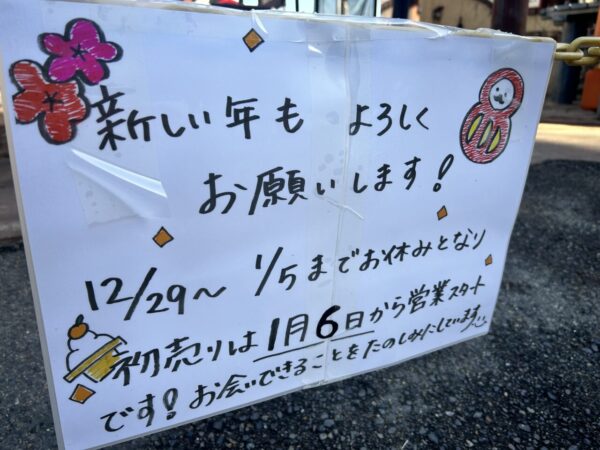 新しい年も よろしく
お願いします!
12/29〜 1/5までお休みとなり
初売りは1月6日から営業スタート
です!お会いできることをたのしみにしています